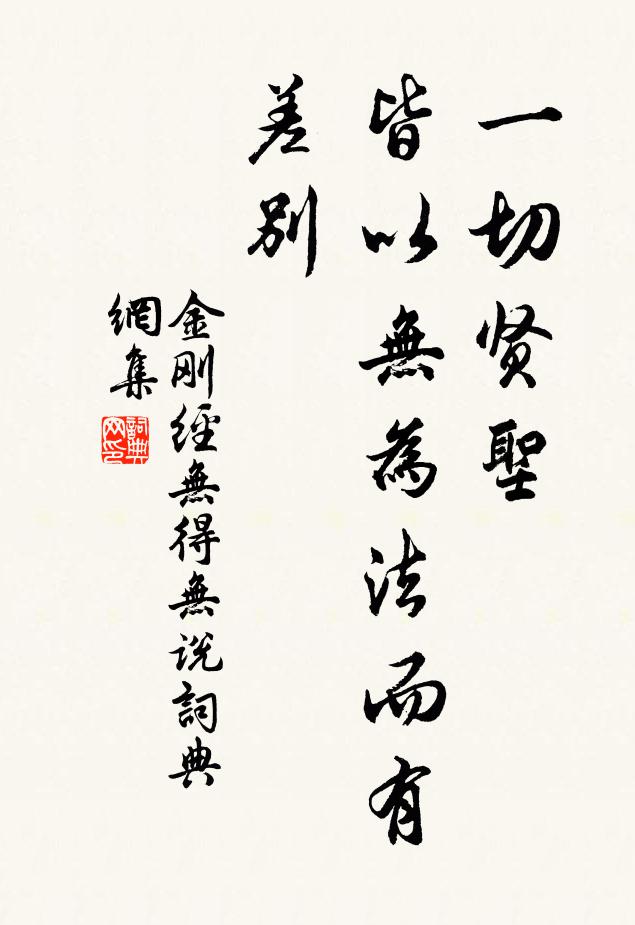 一切贤聖
皆以無為法而有
差别
金刚經無得無说詞典
網集
詞典
网印